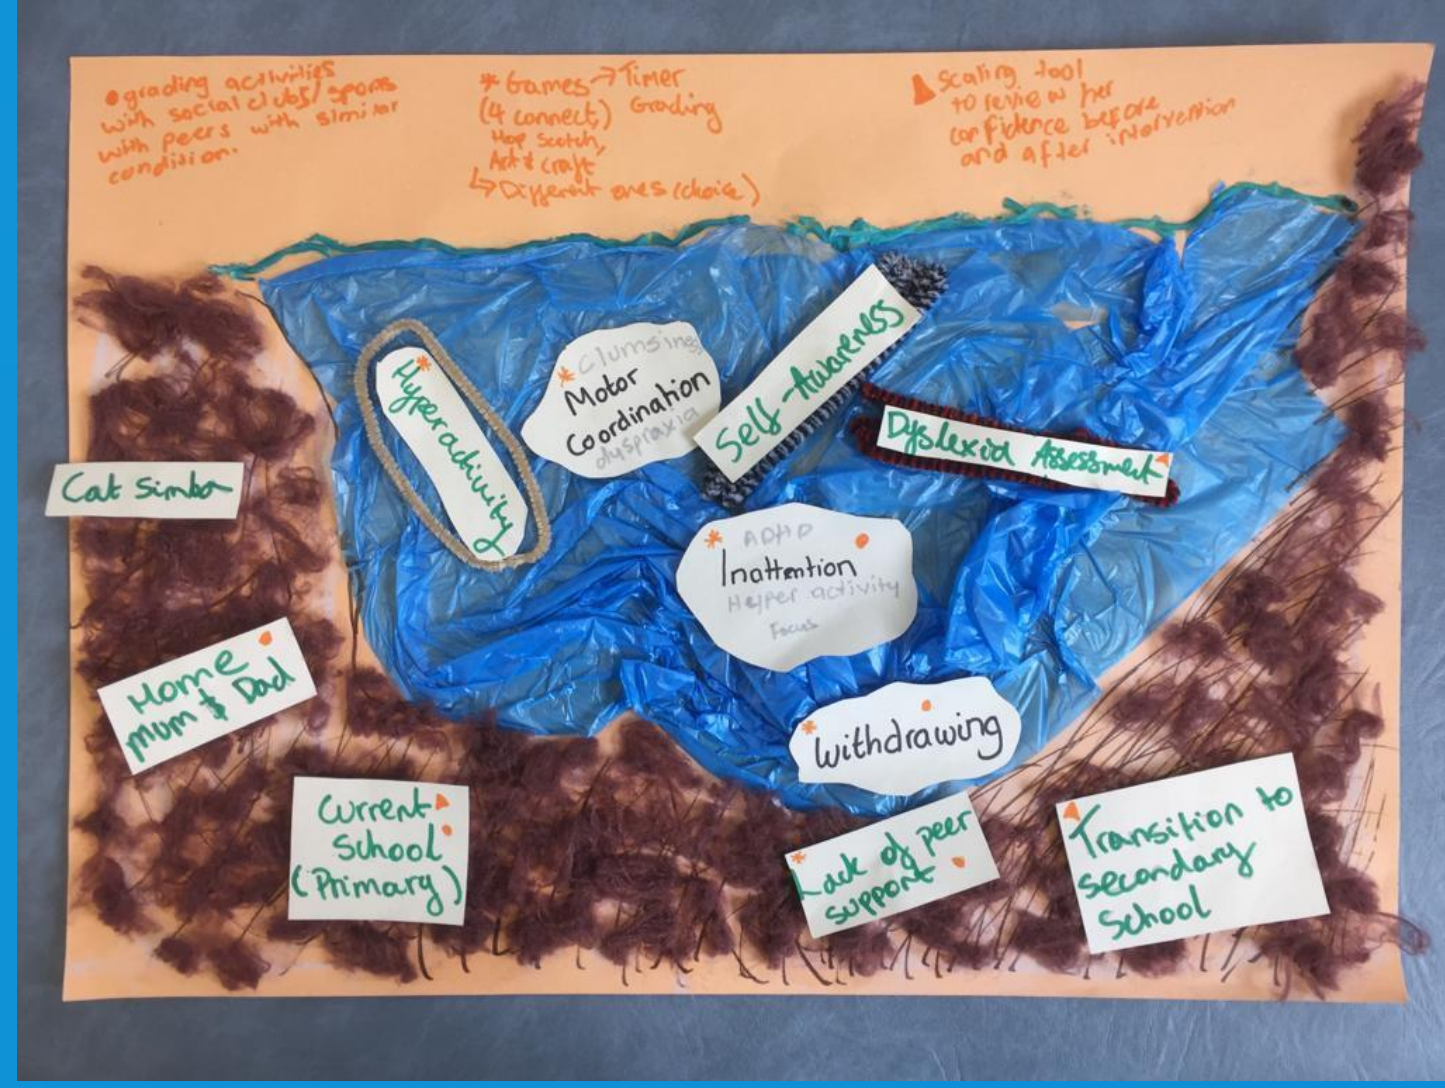 ● grading activities
with social clubs/sports
with peers with similar
condition.
* Games → Timer
(4 connect,) Grading
Hop Scotch,
Art & craft
↳ Different ones (choice)
▲ Scaling tool
to review her
confidence before
and after intervention
* Hyperactivity
Clumsiness
* Motor
Coordination
dyspraxia
Self-Awareness
Dyslexia Assessment
Cat Simba
* ADHD
Inattention
Hyper activity
Focus
Home
mum & Dad
* Withdrawing
Current
School
(Primary)
* Lack of peer
support
Transition to
secondary
School